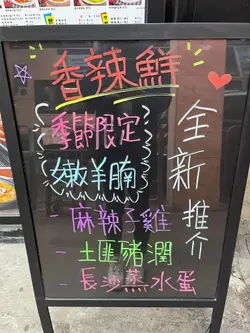 香辣鮮
季節限定
嫩羊腩
全新推介
- 麻辣子雞
- 土匪豬潤
- 長沙蒸水蛋